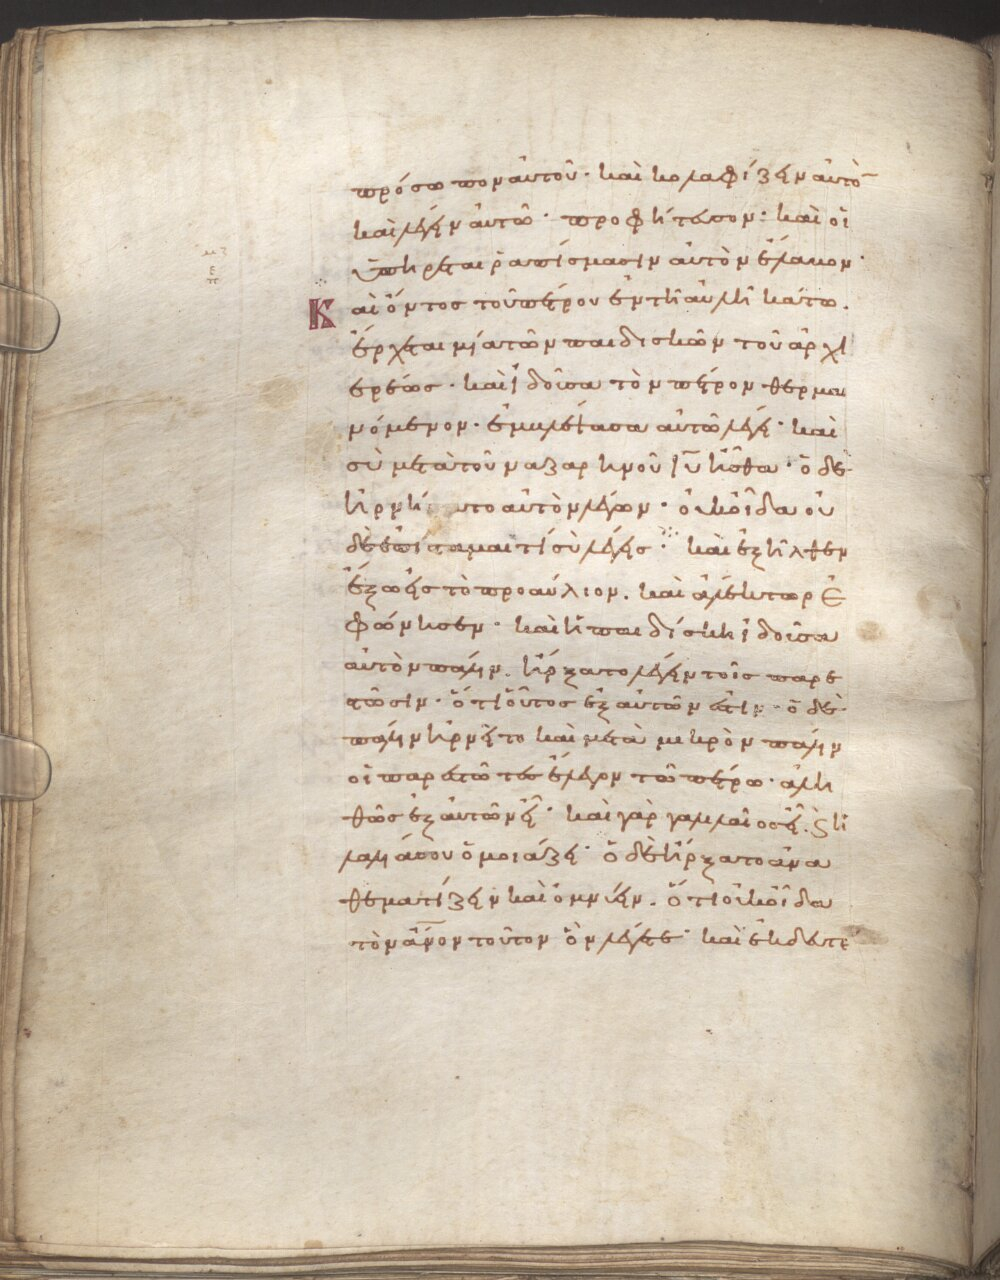 πρόσωπον αὐτοῦ· καὶ κολαφίζειν αὐτὸ
καὶ λέγειν αὐτῶ· προφήτευσον· καὶ οἱ
ὑπηρέται ῥαπίσμασιν αὐτὸν ἔλαβον·
Καὶ ὄντος τοῦ πέτρου ἐν τῆ αὐλῆ κάτω.
ἔρχεται μία τῶν παιδισκῶν τοῦ ἀρχι
ερέως· καὶ ἰδοῦσα τὸν πέτρον θερμαι
νόμενον· ἐμβλέψασα αὐτῶ λέγει· καὶ
σὺ μετὰ τοῦ ναζαρηνοῦ ἰῦ ἦσθα· ὁ δὲ
ἠρνήσατο αὐτὸν λέγων· οὐκ οἶδα οὐ
δὲ ἐπίσταμαι τί σὺ λέγεις· καὶ ἐξῆλθεν
ἔξω εἰς τὸ προαύλιον. καὶ ἀλέκτωρ ἐ
φώνησεν· καὶ ἡ παιδίσκη ἰδοῦσα
αὐτὸν πάλιν. ἤρξατο λέγειν τοῖς παρε
στῶσιν· ὅτι οὗτος ἐξ αὐτῶν ἐστιν· ὁ δὲ
πάλιν ἠρνεῖτο καὶ μετὰ μικρὸν πάλιν
οἱ παρεστῶτες ἔλεγον τῶ πέτρω· ἀλη
θῶς ἐξ αὐτῶν εἶ· καὶ γὰρ γαλιλαῖος εἶ. ϛ ἡ
λαλιά σου ὁμοιάζει· ὁ δὲ ἤρξατο ἀνα
θεματίζειν καὶ ὀμνύειν. ὅτι οὐκ οἶδα
τὸν ἄνον τοῦτον ὃν λέγετε· καὶ ἐκ δευτέ